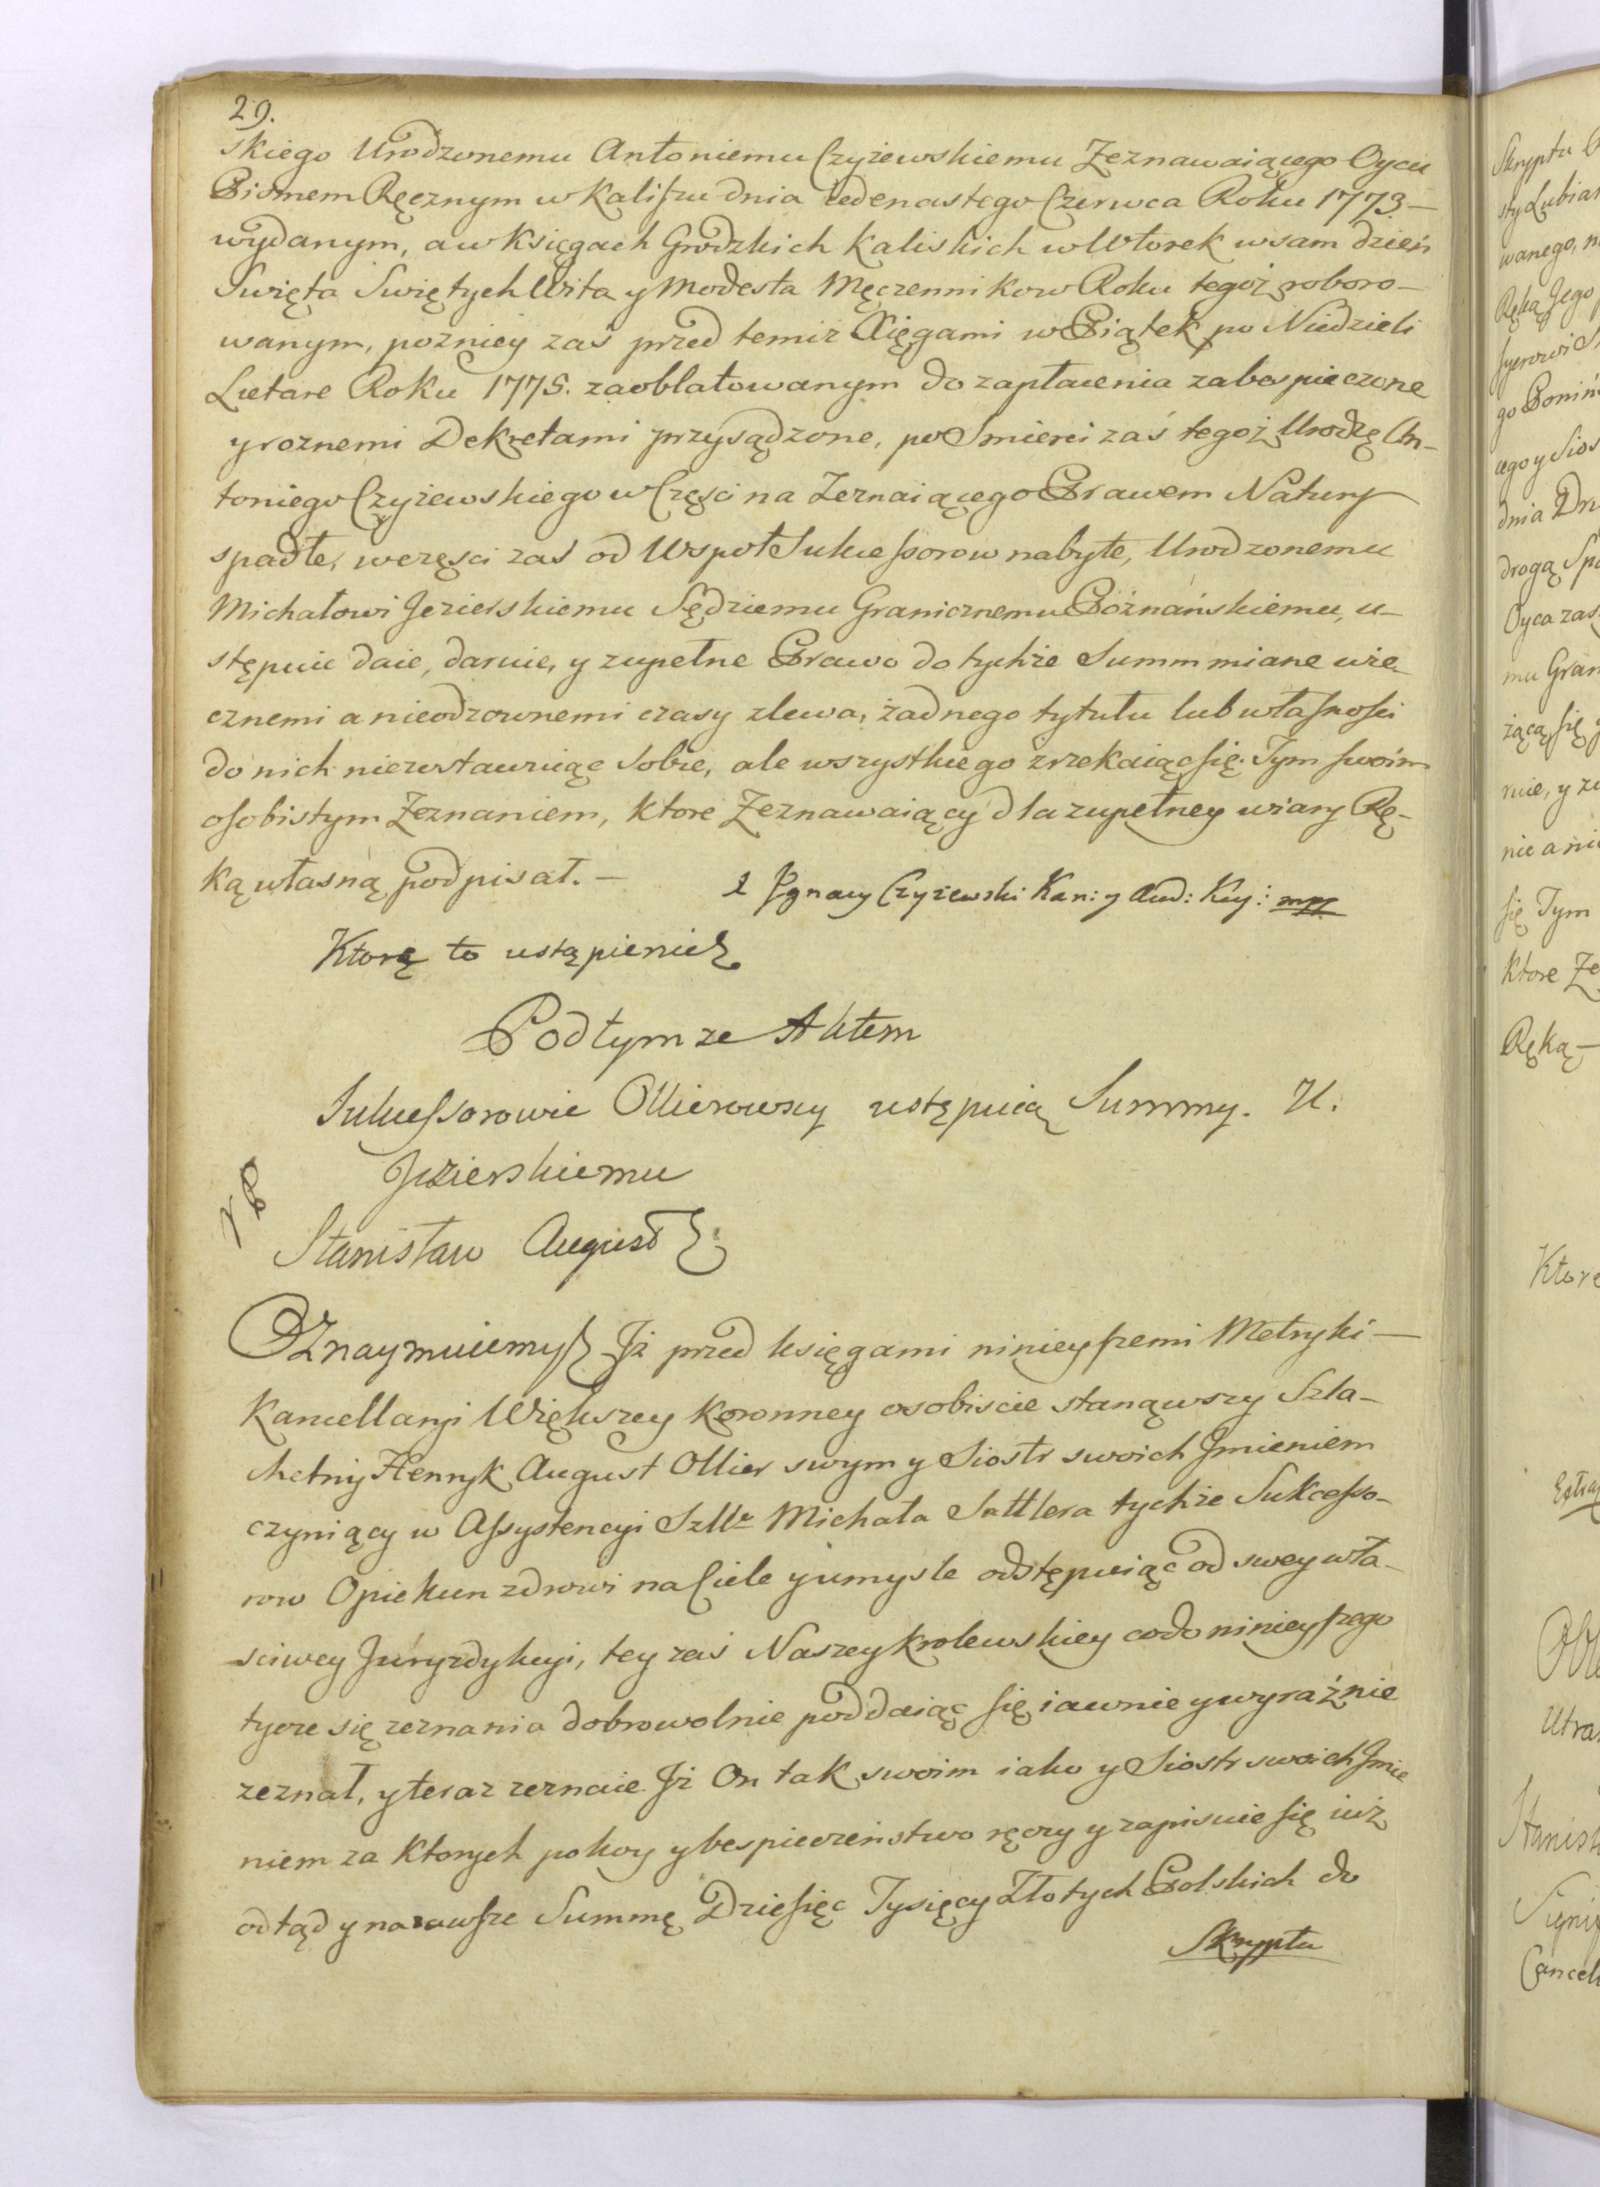 29.
skiego Urodzonemu Antoniemu Czyżewskiemu Zeznawaiącego Oycu
Pismem Ręcznym w Kaliszu dnia iedenastego Czerwca Roku 1773 —
wydanym, a w Księgach Grodzkich Kaliskich w Wtorek w sam dzień
Swięta Swiętych Wita y Modesta Męczennikow Roku tegoż roboro-
wanym, pozniey zaś przed temiż Xięgami w Piątek po Niedzieli
Lætare Roku 1775. zaoblatowanym do zapłacenia zabespieczone
y roznemi Dekretami przysądzone, po Smierci zaś tegoż Urodzę An-
toniego Czyżewskiego w Części na Zeznaiącego Prawem Natury
spadłe, w części zaś od Wspoł Sukcessorow nabyte, Urodzonemu
Michałowi Jezierskiemu Sędziemu Granicznemu Poznańskiemu, u-
stępuie daie, daruie, y zupełne Prawo do tychże Summ miane wie-
cznemi a nieodzownemi czasy zlewa, żadnego tytułu lub własności
do nich niezostawuiąc sobie, ale wszystkiego zrzekaiąc się. Tym swoim
osobistym Zeznaniem, ktore Zeznawaiący dla zupełney wiary Rę-
ką własną podpisał. —
Ignacy Czyżewski Kan: y Aud: Kuj: mpp
Ktorę to ustąpienie
Pod tymże Aktem
Sukcessorowie Ollierowscy ustępuią Summy. U.
Jezierskiemu
Stanisław August
Oznaymuiemy Iż przed księgami ninieyszemi Metryki —
Kancellaryi Większey Koronney osobiscie stanąwszy Szla-
chetny Henryk August Ollier swym y Siostr swoich Imieniem
czyniący w Assystencyi Szlte Michała Sattlera tychże Sukcesso-
row Opiekun zdrowi na Ciele y umysle odstępuiąc od swey wła-
sciwey Juryzdykcyi, tey zaś Naszey krolewskiey co do ninieyszego
tycze się zeznania dobrowolnie poddaiąc się iawnie y wyraźnie
zeznał, y teraz zeznaie Iż On tak swoim iako y Siostr swoich Imie
niem za ktorych pokoy y bespieczeństwo ręczy y zapisuie się iuż
odtąd y nazawsze Summę Dziesięc Tysięcy Złotych Polskich do
Skryptu
Skryptu
sty Lubiań
wanego, n
Ręką Jego
go Poniń
cego y Sios
dnia Dru
drogą Spa
Oyca zaś
mu Gran
żącą się y
nie a nie
się Tym
ktore Ze
Ręką —
Ktorę
Stanisł